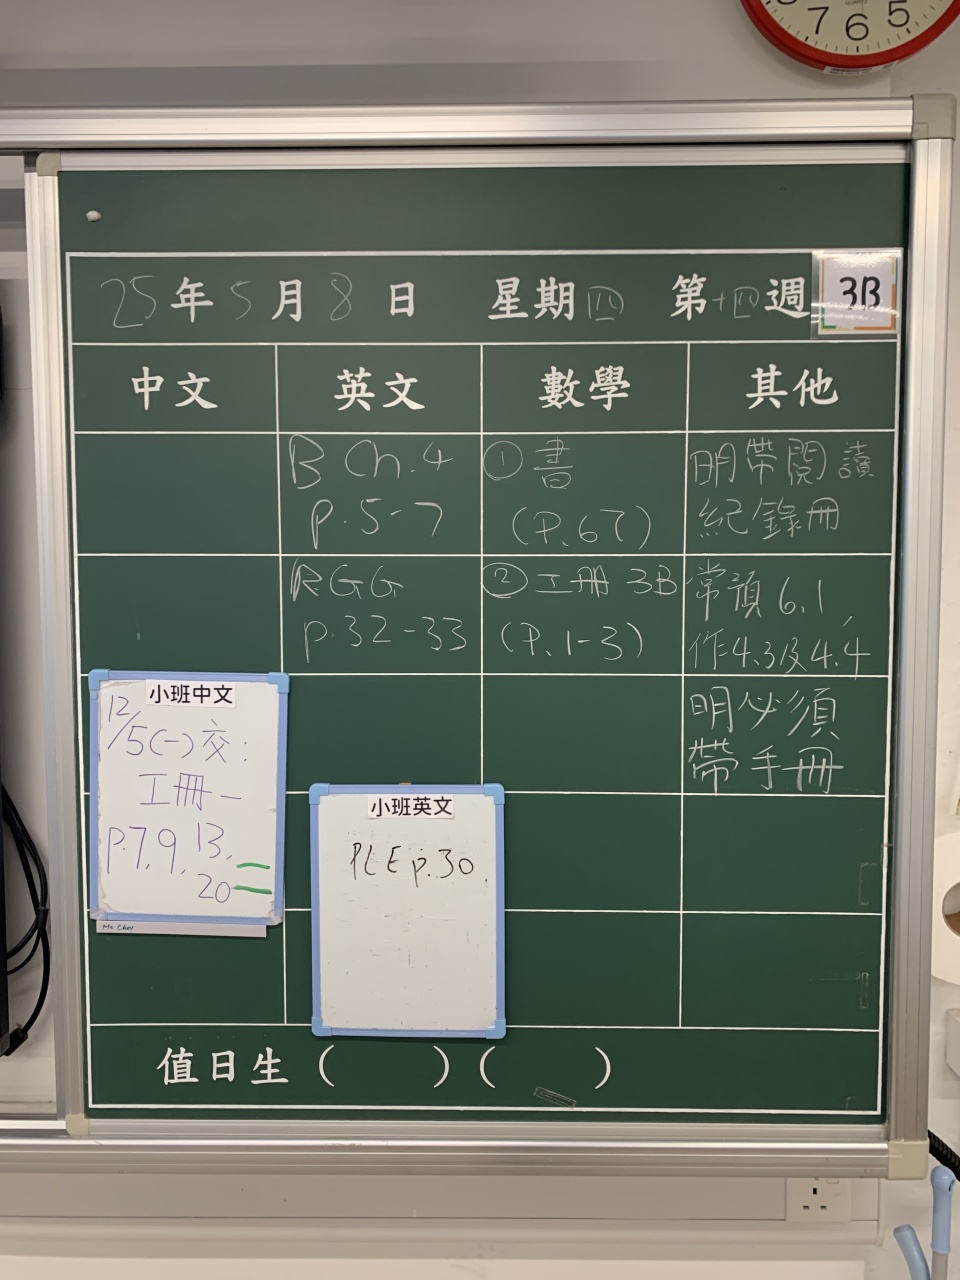 7 6 5
QUARTZ
25年5月8日 星期四 第十四週 3B
中文 英文 數學 其他
B Ch.4
p.5-7
①書
(P.67)
明帶閱讀
紀錄冊
RGG
p.32-33
②工冊 3B
(P.1-3)
常預6.1,
作4.3及4.4
明必須
帶手冊
小班中文
12/5(一)交:
工冊-
p.7,9,13,
20
小班英文
PLE p.30.
值日生( )( )